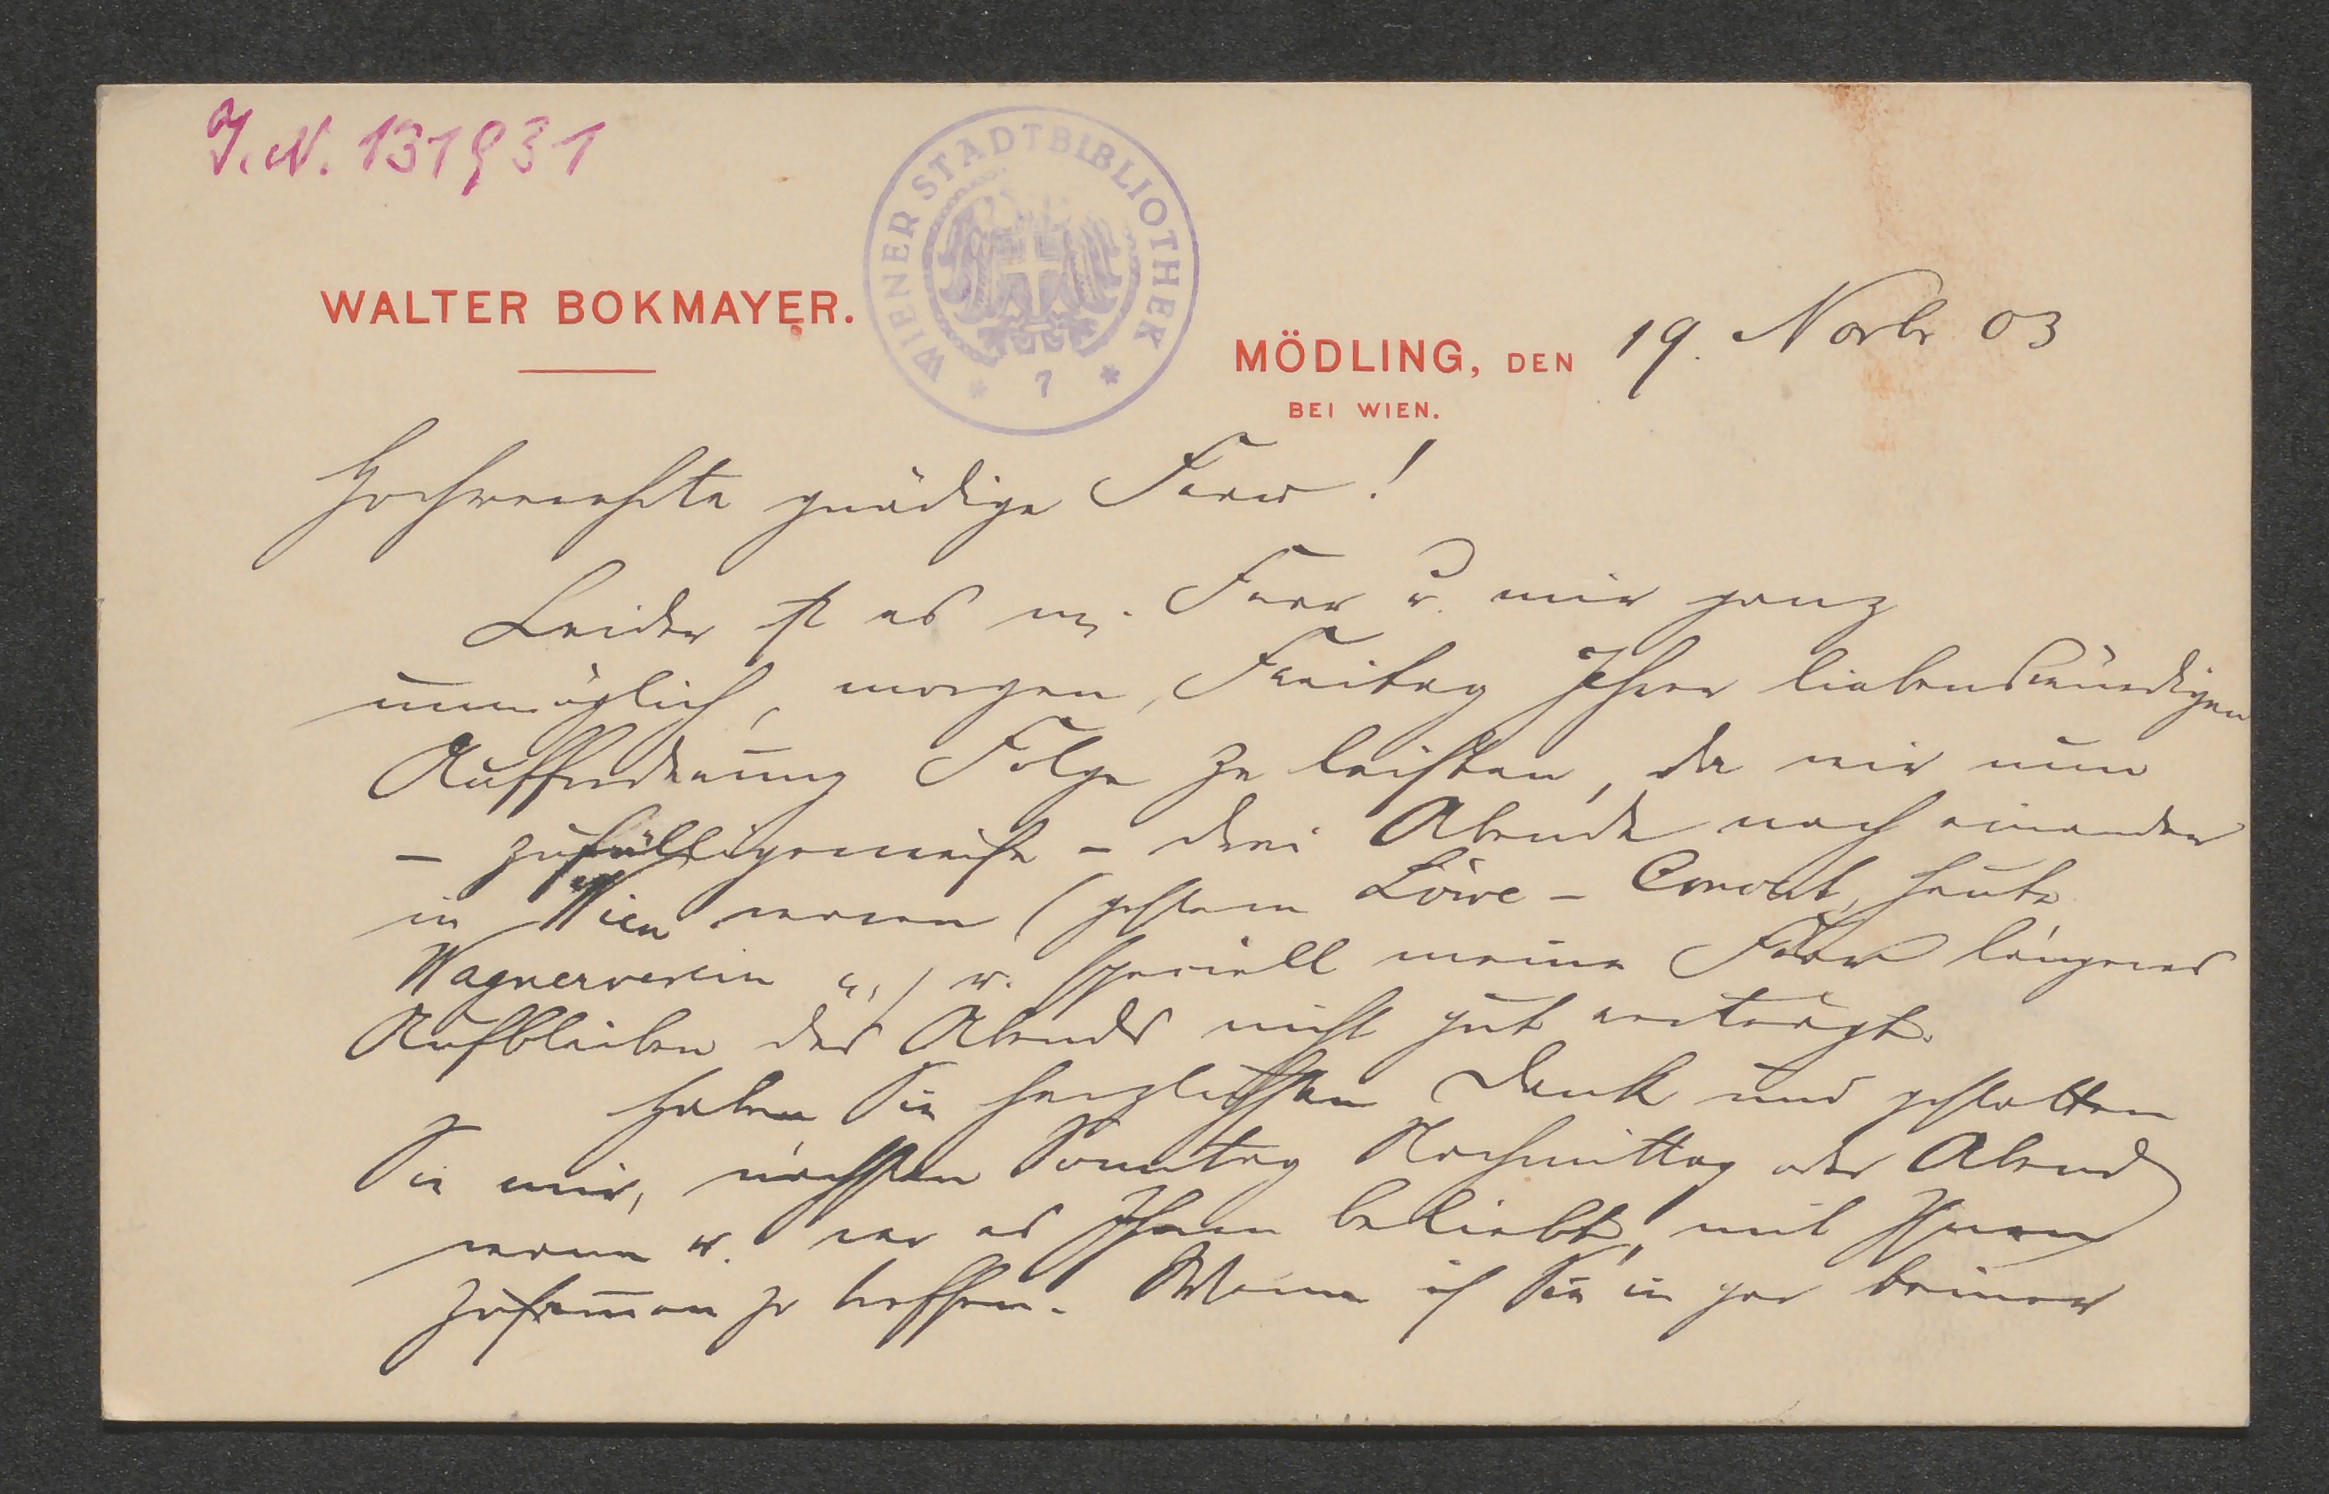 I. N. 131931
WIENER STADTBIBLIOTHEK
* 7 *
WALTER BOKMAYER.
MÖDLING, DEN 19. Novbr 03
BEI WIEN.
Hochverehrte gnädige Frau!
Leider ist es m. Frau u. mir ganz
unmöglich, morgen, Freitag Ihrer liebenswürdigen
Aufforderung Folge zu leisten, da wir nun
– zufälligerweise – drei Abende nach einander
in Wien waren (gestern Löwe-Concert, heute
Wagnerverein u. speciell meine Frau längeres
Aufbleiben des Abends nicht gut verträgt.
Haben Sie herzlichsten Dank und gestatten
Sie mir, nächsten Sonntag Nachmittag oder Abend
wann u. wo es Ihnen beliebt, mit Ihnen
zusammen zu treffen. Wenn ich Sie in gar keiner